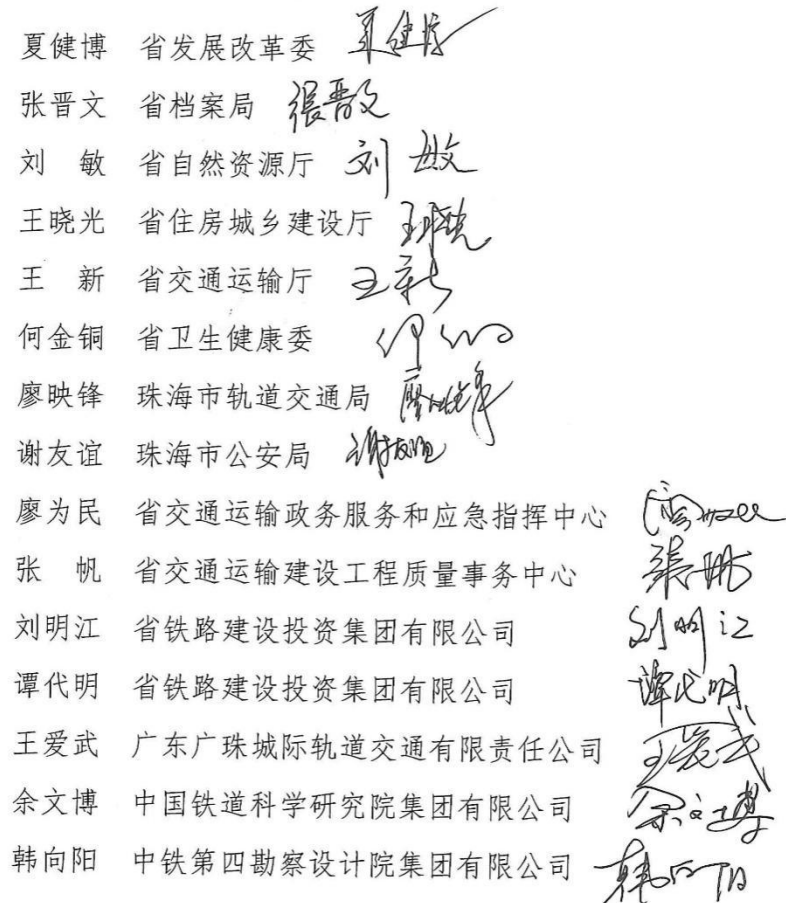 夏健博 省发展改革委 夏健博
张晋文 省档案局 張晋文
刘 敏 省自然资源厅 刘敏
王晓光 省住房城乡建设厅 王晓光
王 新 省交通运输厅 王新
何金铜 省卫生健康委
廖映锋 珠海市轨道交通局 廖映锋
谢友谊 珠海市公安局 谢友谊
廖为民 省交通运输政务服务和应急指挥中心
张 帆 省交通运输建设工程质量事务中心 張帆
刘明江 省铁路建设投资集团有限公司 刘明江
谭代明 省铁路建设投资集团有限公司 谭代明
王爱武 广东广珠城际轨道交通有限责任公司 王爱武
余文博 中国铁道科学研究院集团有限公司 余文博
韩向阳 中铁第四勘察设计院集团有限公司 韩向阳